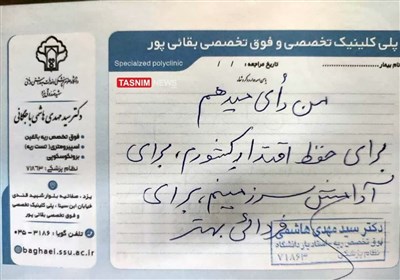 پلی کلینیک تخصصی و فوق تخصصی بقائی پور
Specialzed polyclinic
نام بیمار:
تاریخ مراجعه: / /
TASNIM NEWS
من رأی میدهم
برای حفظ اقتدار کشورم، برای
آرامش سرزمینم، برای
فردائی بهتر
دکتر سید مهدی هاشمی
فوق تخصص ریه، استادیار دانشگاه
نظام پزشکی
۷۱۸۶۳
دکتر سید مهدی هاشمی باجگانی
فوق تخصص ریه بالغین
اسپیرومتری (تست ریه)
برونکوسکوپی
نظام پزشکی: ۷۱۸۶۳
یزد - صفائیه بلوار شهید قندی
خیابان ابن سینا - پلی کلینیک
فوق تخصصی بقائی پور
تلفن گویا: ۳۱۸۶ - ۰۳۵
baghaei.ssu.ac.ir